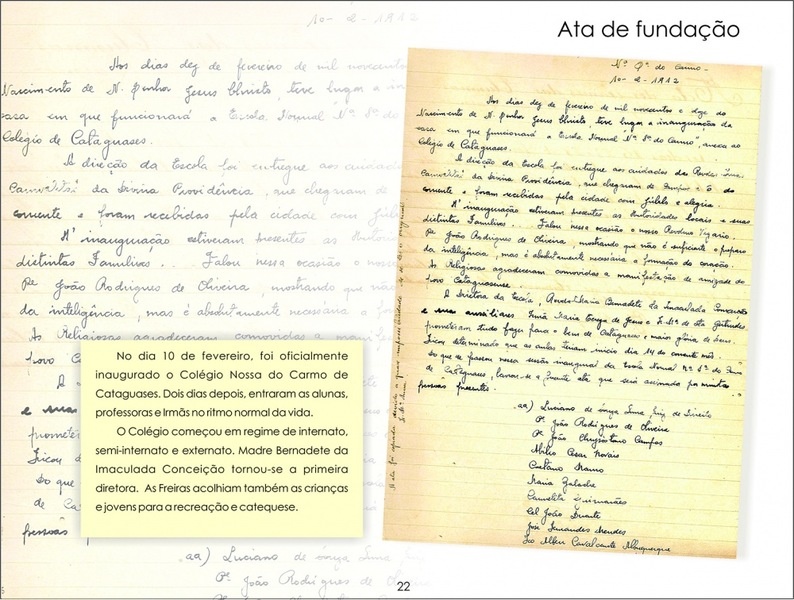 Ata de fundação
Nª Sª do Carmo -
10-2-1912
Aos dias dez de fevereiro de mil novecentos e doze do
Nascimento de N. Senhor Jesus Christo, teve lugar a inauguração da
casa em que funccionará a Escola Normal "Nª Sª do Carmo", annexa ao
Colégio de Cataguases.
A direcção da Escola foi entregue aos cuidados das Revdas. Irmas
Carmelitas da Divina Providência, que chegaram de
corrente e foram recebidas pela cidade com júbilo e alegria.
A' inauguração estiveram presentes as Autoridades locais e suas
distintas Familias... Falou nessa ocasião o nosso Revdmo Vigario
Pe João Rodrigues de Oliveira, mostrando que não é suficiente o preparo
da inteligência, mas é absolutamente necessária a formação do coração.
As Religiosas agradeceram comovidas a manifestação de amizade do
povo Cataguasense.
A Diretora da Escola, Revda Maria Bernadete da Imaculada Conceição
e suas auxiliares Irmã Maria Tereza de Jesus e I. Mª de Sta Gertrudes
prometeram tudo fazer para o bem de Cataguases e maior glória de Deus.
Ficou determinado que as aulas teriam inicio dia 14 do corrente mês.
Do que se passou nessa sessão inaugural da Escola Normal Nª Sª do Carmo
de Cataguases, lavrou-se a presente ata que será assinada por muitas
pessoas presentes.
aa) Luciano de Souza Lima, Juiz de Direito
Pe. João Rodrigues de Oliveira
Pe. João Chrysóstomo Campos
Cesar Novais
Caetano
Maria
Carmelita Guimarães
Cel João Duarte
José Fernandes Mendes
Cavalcante Albuquerque
No dia 10 de fevereiro, foi oficialmente
inaugurado o Colégio Nossa do Carmo de
Cataguases. Dois dias depois, entraram as alunas,
professoras e Irmãs no ritmo normal da vida.
O Colégio começou em regime de internato,
semi-internato e externato. Madre Bernadete da
Imaculada Conceição tornou-se a primeira
diretora. As Freiras acolhiam também as crianças
e jovens para a recreação e catequese.
22